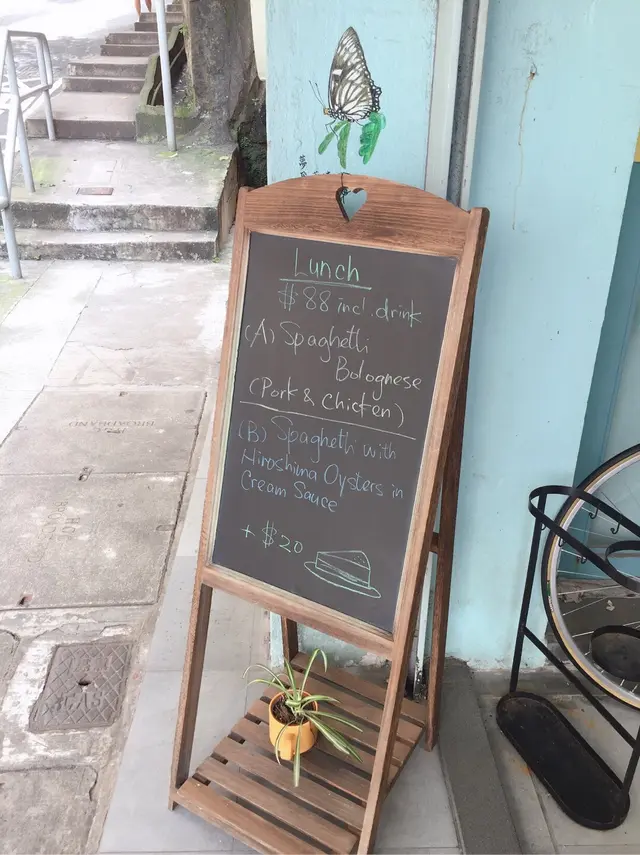 Lunch
$88 incl. drink
(A) Spaghetti
Bolognese
(Pork & Chicken)
(B) Spaghetti with
Hiroshima Oysters in
Cream Sauce
+ $20